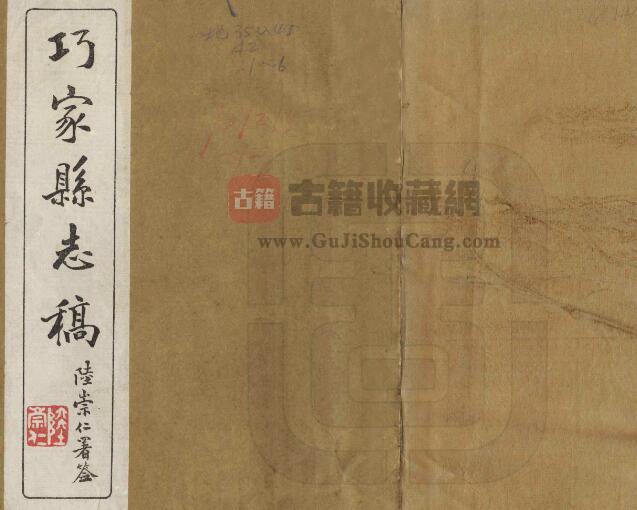 巧家縣志稿
陸崇仁署簽
陸崇仁
42
1~6
古籍
古籍收藏網
www.GuJiShouCang.com